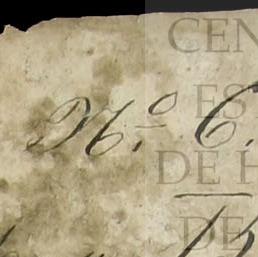 CEN
Nº. C.
ES
DE H
DE